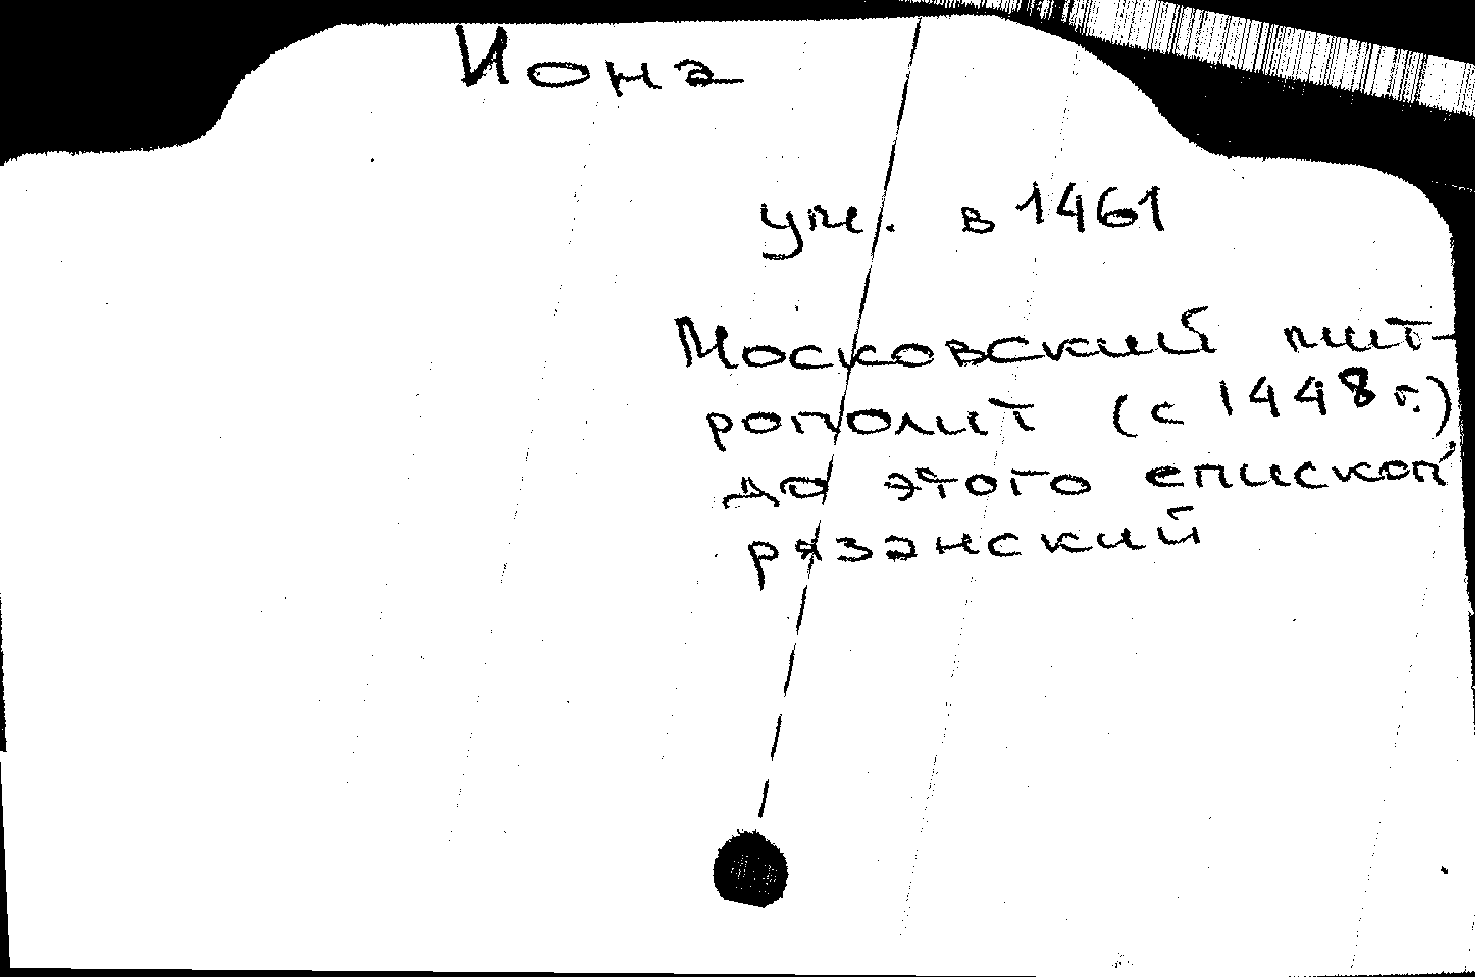 Иона
ум. в 1461
Московский мит-
рополит (с 1448 г.)
до этого епископ
рязанский